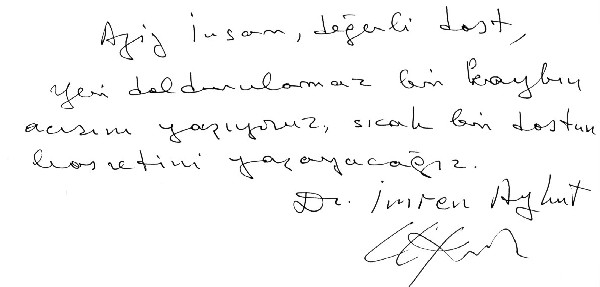 Aziz insan, değerli dost,
yeri doldurulamaz bir kaybın
acısını yaşıyoruz, sıcak bir dostun
hasretini yaşayacağız.
Dr. İmren Aykut